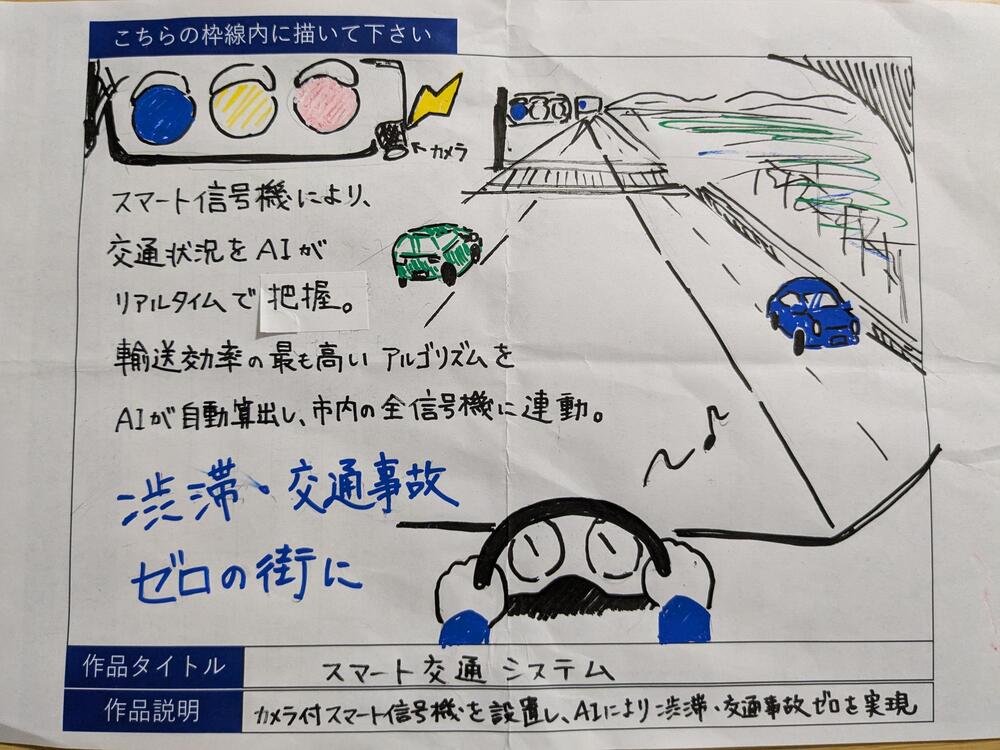 こちらの枠線内に描いて下さい
←カメラ
スマート信号機により、
交通状況をAIが
リアルタイムで把握。
輸送効率の最も高いアルゴリズムを
AIが自動算出し、市内の全信号機に連動。
渋滞・交通事故
ゼロの街に
作品タイトル スマート交通システム
作品説明 カメラ付スマート信号機を設置し、AIにより渋滞・交通事故ゼロを実現